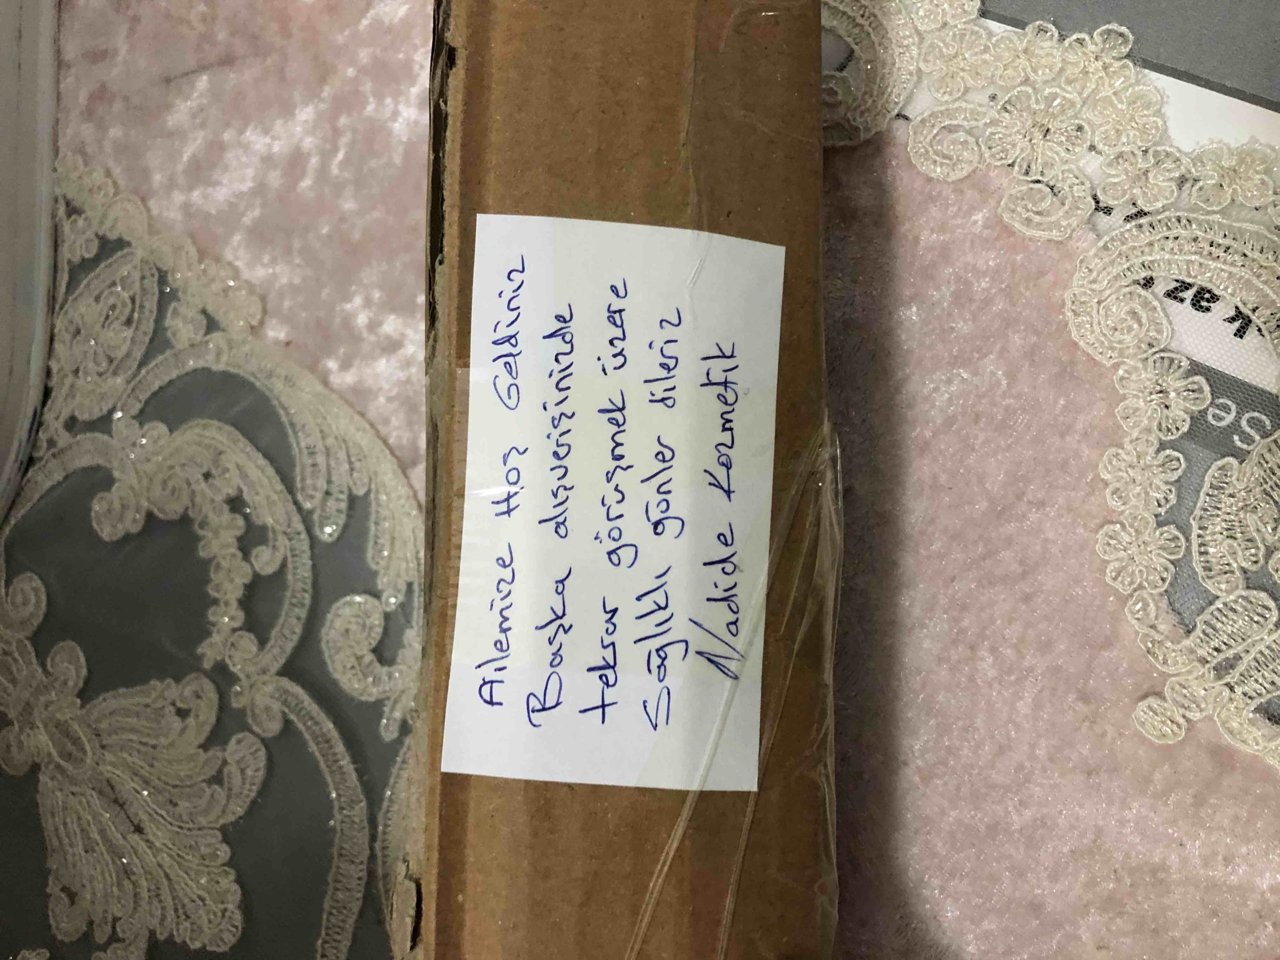 Ailemize Hoş Geldiniz
Başka alışverişinizde
tekrar görüşmek üzere
Sağlıklı günler dileriz
Nadide Kozmetik